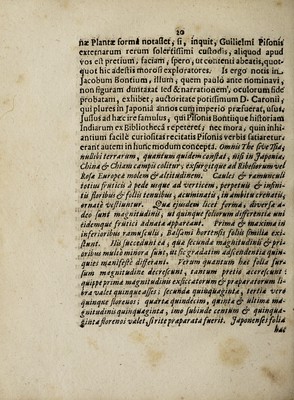 20
næ Plantæ formâ notasset, si, inquit, Guilielmi Pisonis
externarum rerum solertissimi custodis, aliquod apud
vos est pretium, faciam, spero, ut contenti abeatis, quot-
quot hic adestis morosi exploratores. Is ergo notis in
Jacobum Bontium, illum, quem paulò ante nominavi,
non figuram duntaxat sed & narrationem, oculorum fide
probatam, exhibet, auctoritate potissimum D. Caronii,
qui plures in Japonia annos cum imperio præfuerat, usus.
Jussos ad hæc ire famulus, qui Pisonis Bontiique historiam
Indiarum ex Bibliotheca repeteret; nec mora, quin inhi-
antium facilè curiositas recitatis Pisonis verbis satiaretur.
erant autem in hunc modum concepti. Omnis The sive Tsia,
nullibi terrarum, quantum quidem constat, nisi in Japonia,
China & Chiam campis colitur, exsurgitque ad Ribesiorum vel
Rosæ Europeæ molem & altitudinem. Caules & ramunculi
totius fruticis à pede usque ad verticem, perpetuis & infini-
tis floribus & foliis tenuibus, acuminatis, in ambitu crenatis,
ornatè vestiuntur. Quæ ejusdem licet formæ, diversæ a-
deo sunt magnitudinis, ut quinque foliorum differentia uni
eidemque frutici adnata appareant. Prima & maxima in
inferioribus ramusculis, Balsami hortensis foliis similia exi-
stunt. His succedunt ea, quæ secunda magnitudinis & pri-
oribus multò minora sunt, ut sic gradatim adscendentia quin-
quies manifestè differant. Verum quantum hæc folia sur-
sum magnitudine decrescunt, tantum pretio accrescunt:
quippe prima magnitudinis exsiccatorum & præparatorum li-
bra valet quinque asses; secunda quinquaginta, tertia verò
quinque florenos; quarta quindecim, quinta & ultima ma-
gnitudinis quinquaginta, imo subinde centum & quinqua-
ginta florenos valet, si ritè præparata fuerit. Japonenses folia
hæc